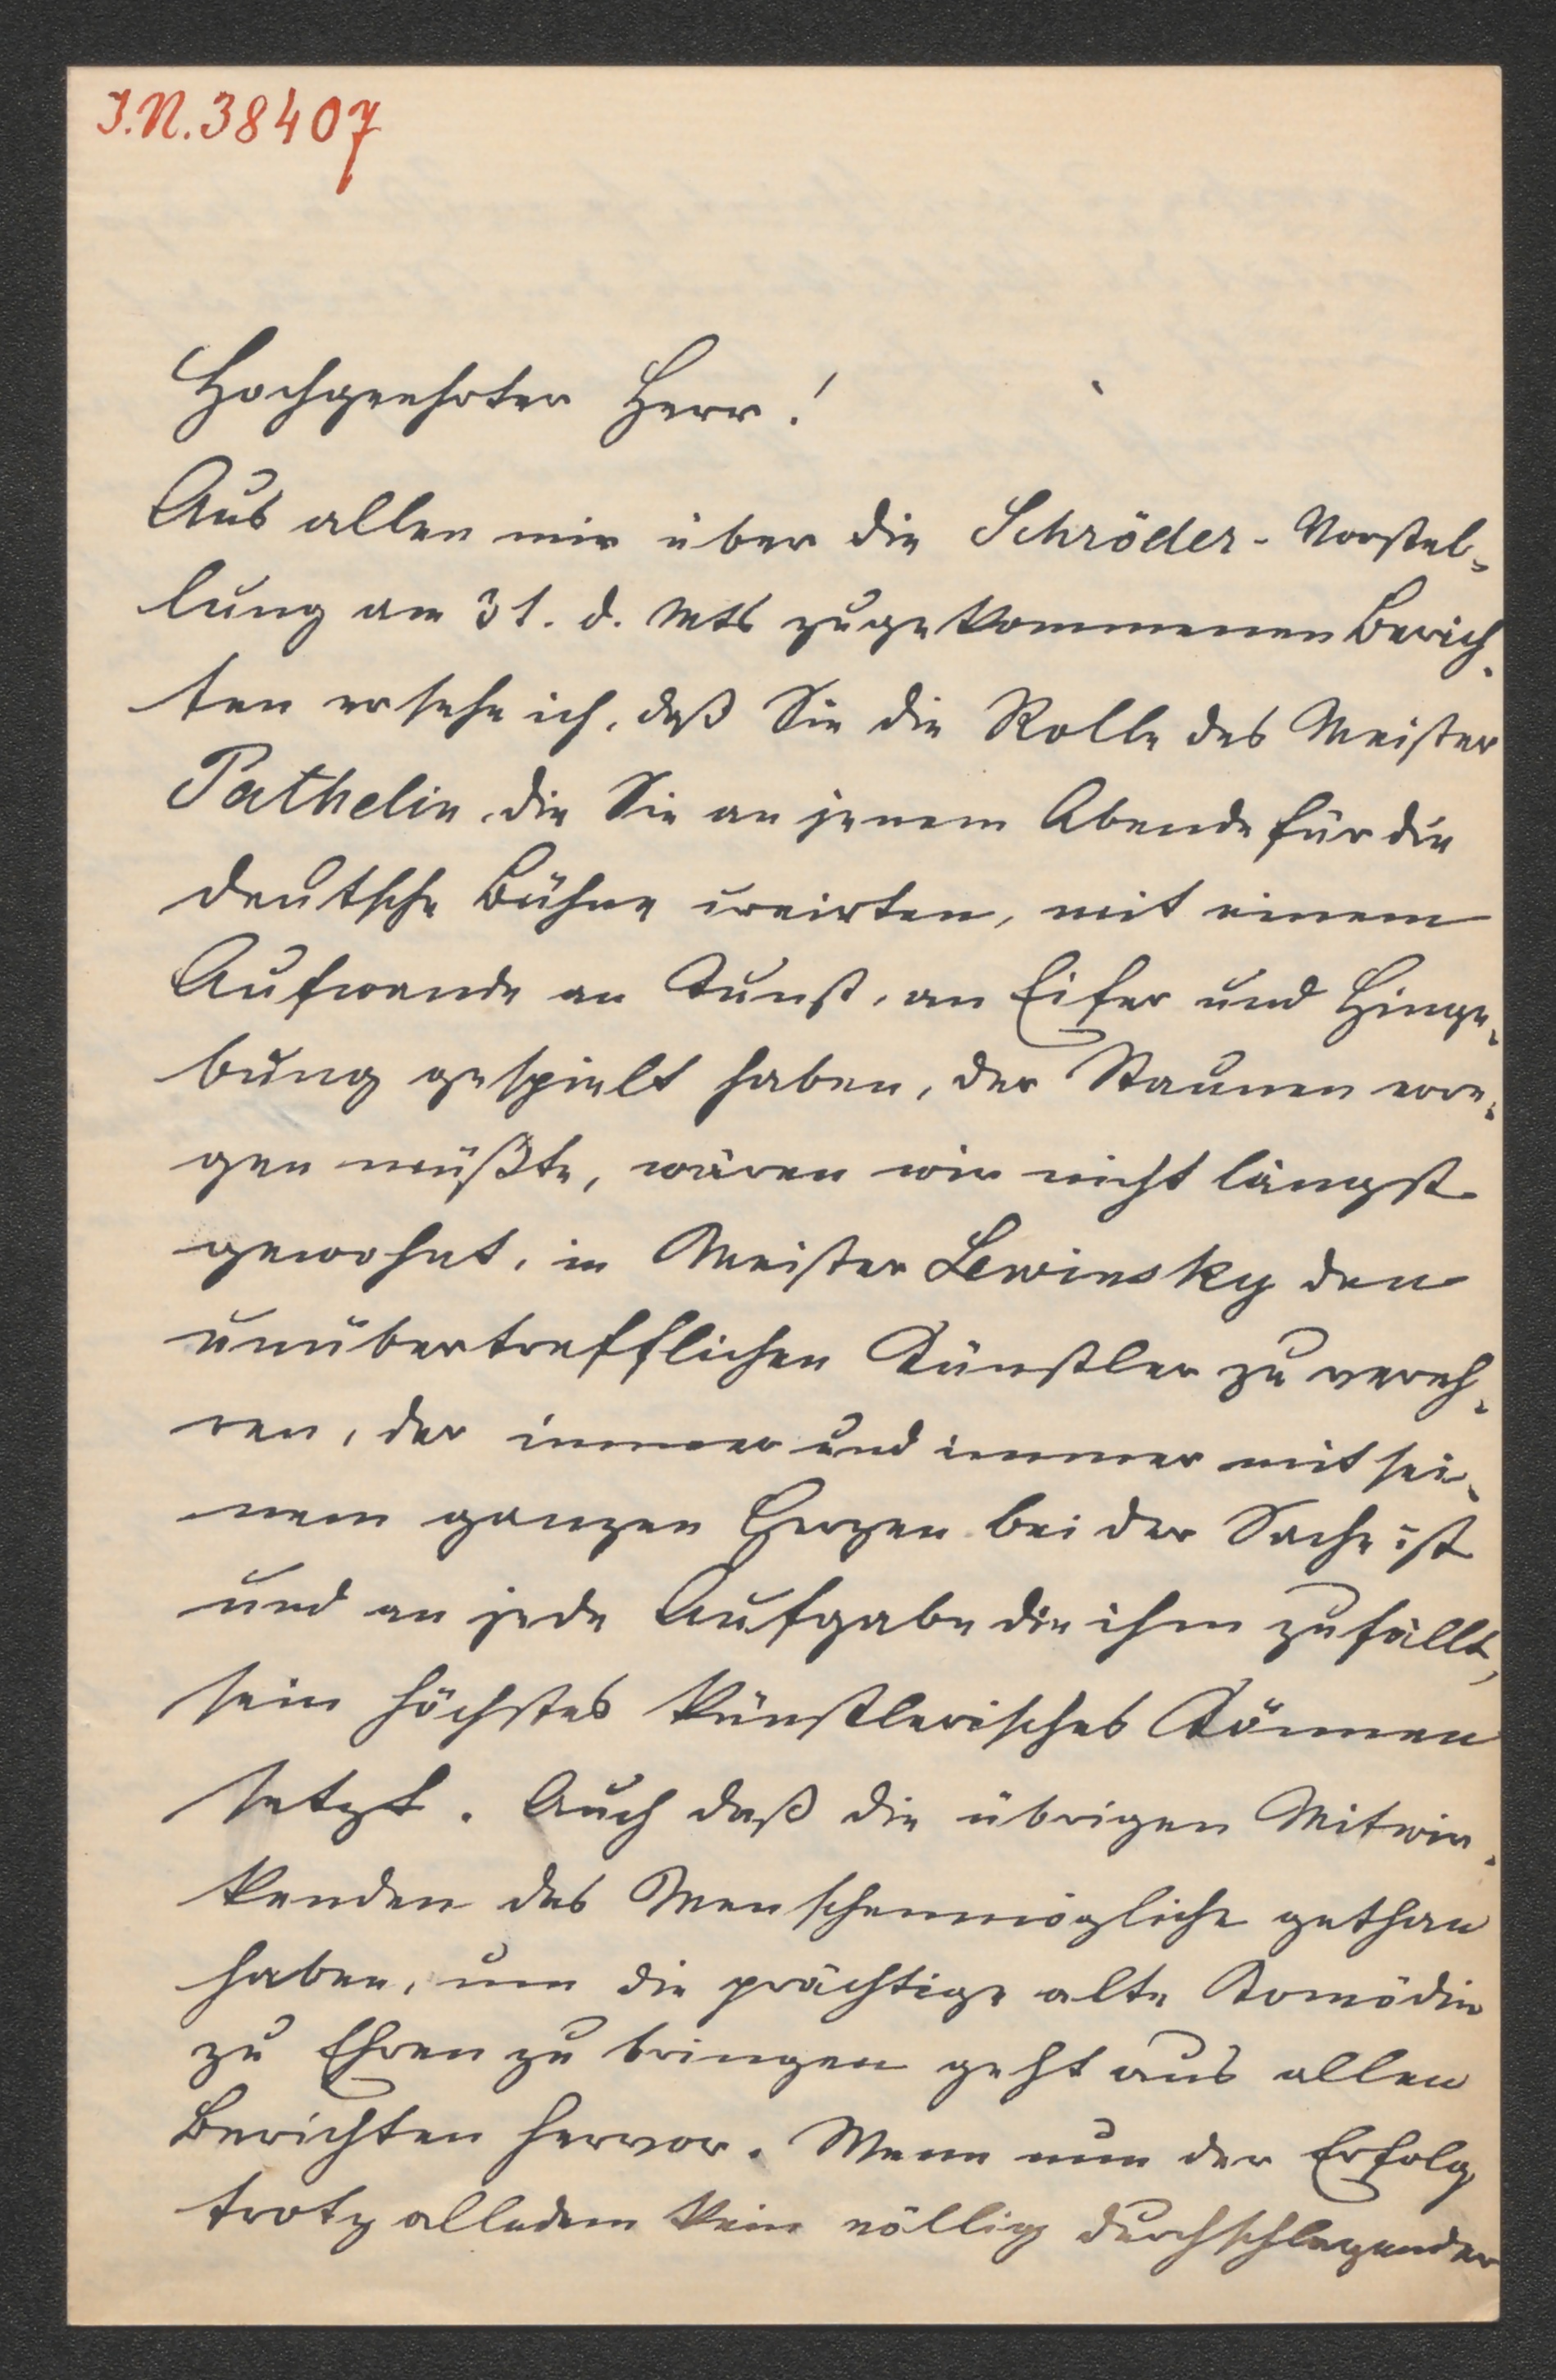 I.N. 38407
Hochgeehrter Herr!
Aus allen mir über die Schröder-Vorstel-
lung am 31. d. Mts zugekommenen Berich-
ten ersehe ich, daß Sie die Rolle des Meister
Pathelin, die Sie an jenem Abende für die
deutsche Bühne creirten, mit einem
Aufwande an Kunst, an Eifer und Hinge-
bung gespielt haben, der Staunen erre-
gen müßte, wären wir nicht längst
gewohnt, in Meister Lewinsky den
unübertrefflichen Künstler zu vereh-
ren, der immer und immer mit sei-
nem ganzen Herzen bei der Sache ist
und an jede Aufgabe die ihm zufällt,
sein höchstes künstlerisches Können
setzt. Auch daß die übrigen Mitwir-
kenden das Menschenmögliche gethan
haben, um die prächtige alte Komödie
zu Ehren zu bringen geht aus allen
Berichten hervor. Wenn nun der Erfolg
trotz alledem kein völlig durchschlagender